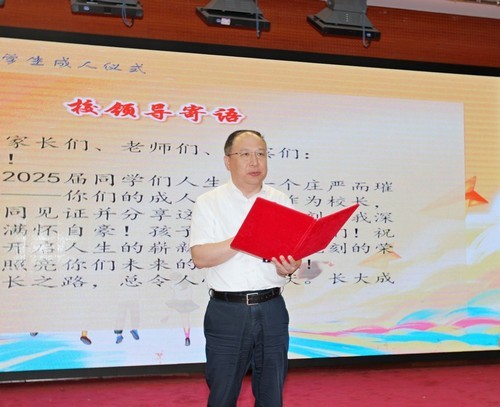 学生成人仪式
校领导寄语
家长们、老师们、 们：
！
2025届同学们人生 个庄严而璀
——你们的成人 作为校长，
同见证并分享这 刻 我深
满怀自豪！孩子 们！祝
开启人生的崭新 刻的荣
照亮你们未来的
长之路，总令人 。长大成